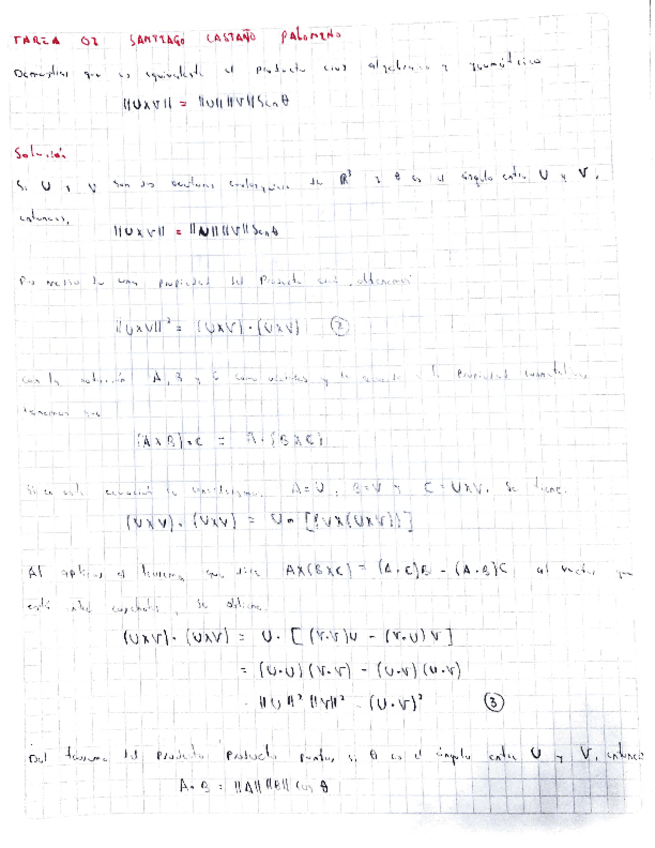 TAREA 02 SANTIAGO CASTAÑO PALOMINO
Demostrar que es equivalente el producto cruz algebraico y geométrico
||UXV|| = ||U|| ||V|| Sen θ
Solución
Si U y V son dos vectores cualesquiera de R³ y θ es el ángulo entre U y V,
entonces,
||UXV|| = ||U|| ||V|| Sen θ
Por medio de una propiedad del Producto cruz, obtenemos
||UXV||² = (UXV) · (UXV) (2)
con la notación A, B y C como vectores y de acuerdo a la Propiedad
tenemos que
(AXB) · C = A · (BXC)
Si en esta ecuación se A=U, B=V y C=UXV, se tiene.
(UXV) · (UXV) = U · [(VX(UXV))]
Al aplicar el teorema que dice AX(BXC) = (A·C)B - (A·B)C al vector que
está entre corchetes, se obtiene
(UXV) · (UXV) = U · [(V·V)U - (V·U)V]
= (U·U)(V·V) - (U·V)(U·V)
= ||U||² ||V||² - (U·V)² (3)
Del teorema del Producto Producto punto, si θ es el ángulo entre U y V, entonces
A·B = ||A|| ||B|| Cos θ